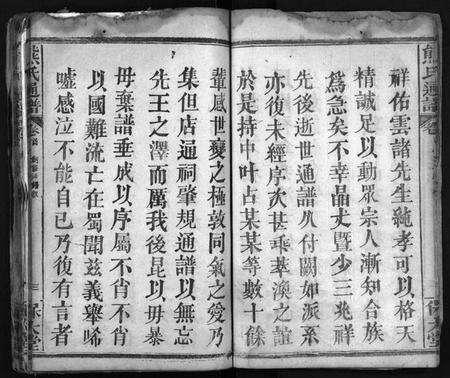 熊氏通譜
祥佑雲諸先生純孝可以格天
精誠足以動眾宗人漸知合族
為急矣不幸晶丈暨少三兆祥
先後逝世通譜久付闕如派系
亦復未經序次甚乖萃渙之誼
於是持中叶占某某等數十餘
輩感世變之極敦同氣之愛乃
集但店逼祠肇規通譜以無忘
先王之澤而厲我後昆以毋暴
毋棄譜垂成以序屬不肖不肖
以國難流亡在蜀聞茲義舉唏
噓感泣不能自已乃復有言者
熊氏通譜